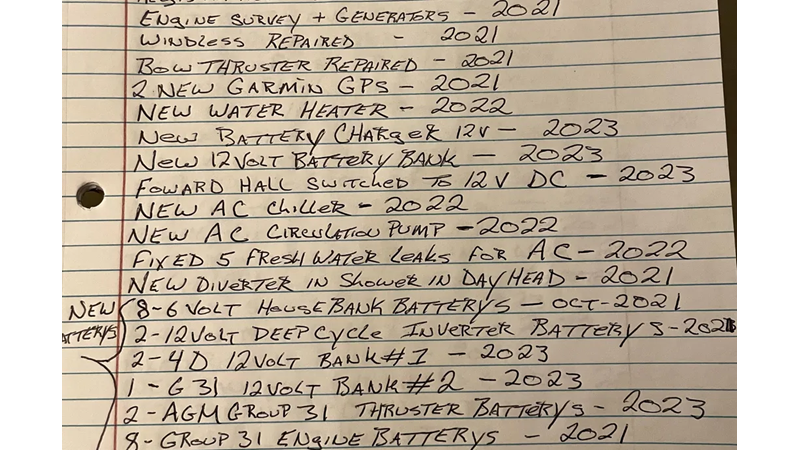 ENGINE SURVEY + GENERATORS - 2021
WINDLESS REPAIRED - 2021
BOW THRUSTER REPAIRED - 2021
2 NEW GARMIN GPS - 2021
NEW WATER HEATER - 2022
NEW BATTERY CHARGER 12V - 2023
NEW 12VOLT BATTERY BANK - 2023
FOWARD HALL SWITCHED TO 12 V DC - 2023
NEW AC CHILLER - 2022
NEW AC CIRCULATION PUMP - 2022
FIXED 5 FRESH WATER LEAKS FOR AC - 2022
NEW DIVERTER IN SHOWER IN DAY HEAD - 2021
NEW 8-6 VOLT HOUSE BANK BATTERYS - OCT-2021
2-12VOLT DEEP CYCLE INVERTER BATTERYS - 2021
2-4D 12VOLT BANK #1 - 2023
1 - G 31 12VOLT BANK #2 - 2023
2-AGM GROUP 31 THRUSTER BATTERYS - 2023
8-GROUP 31 ENGINE BATTERYS - 2021